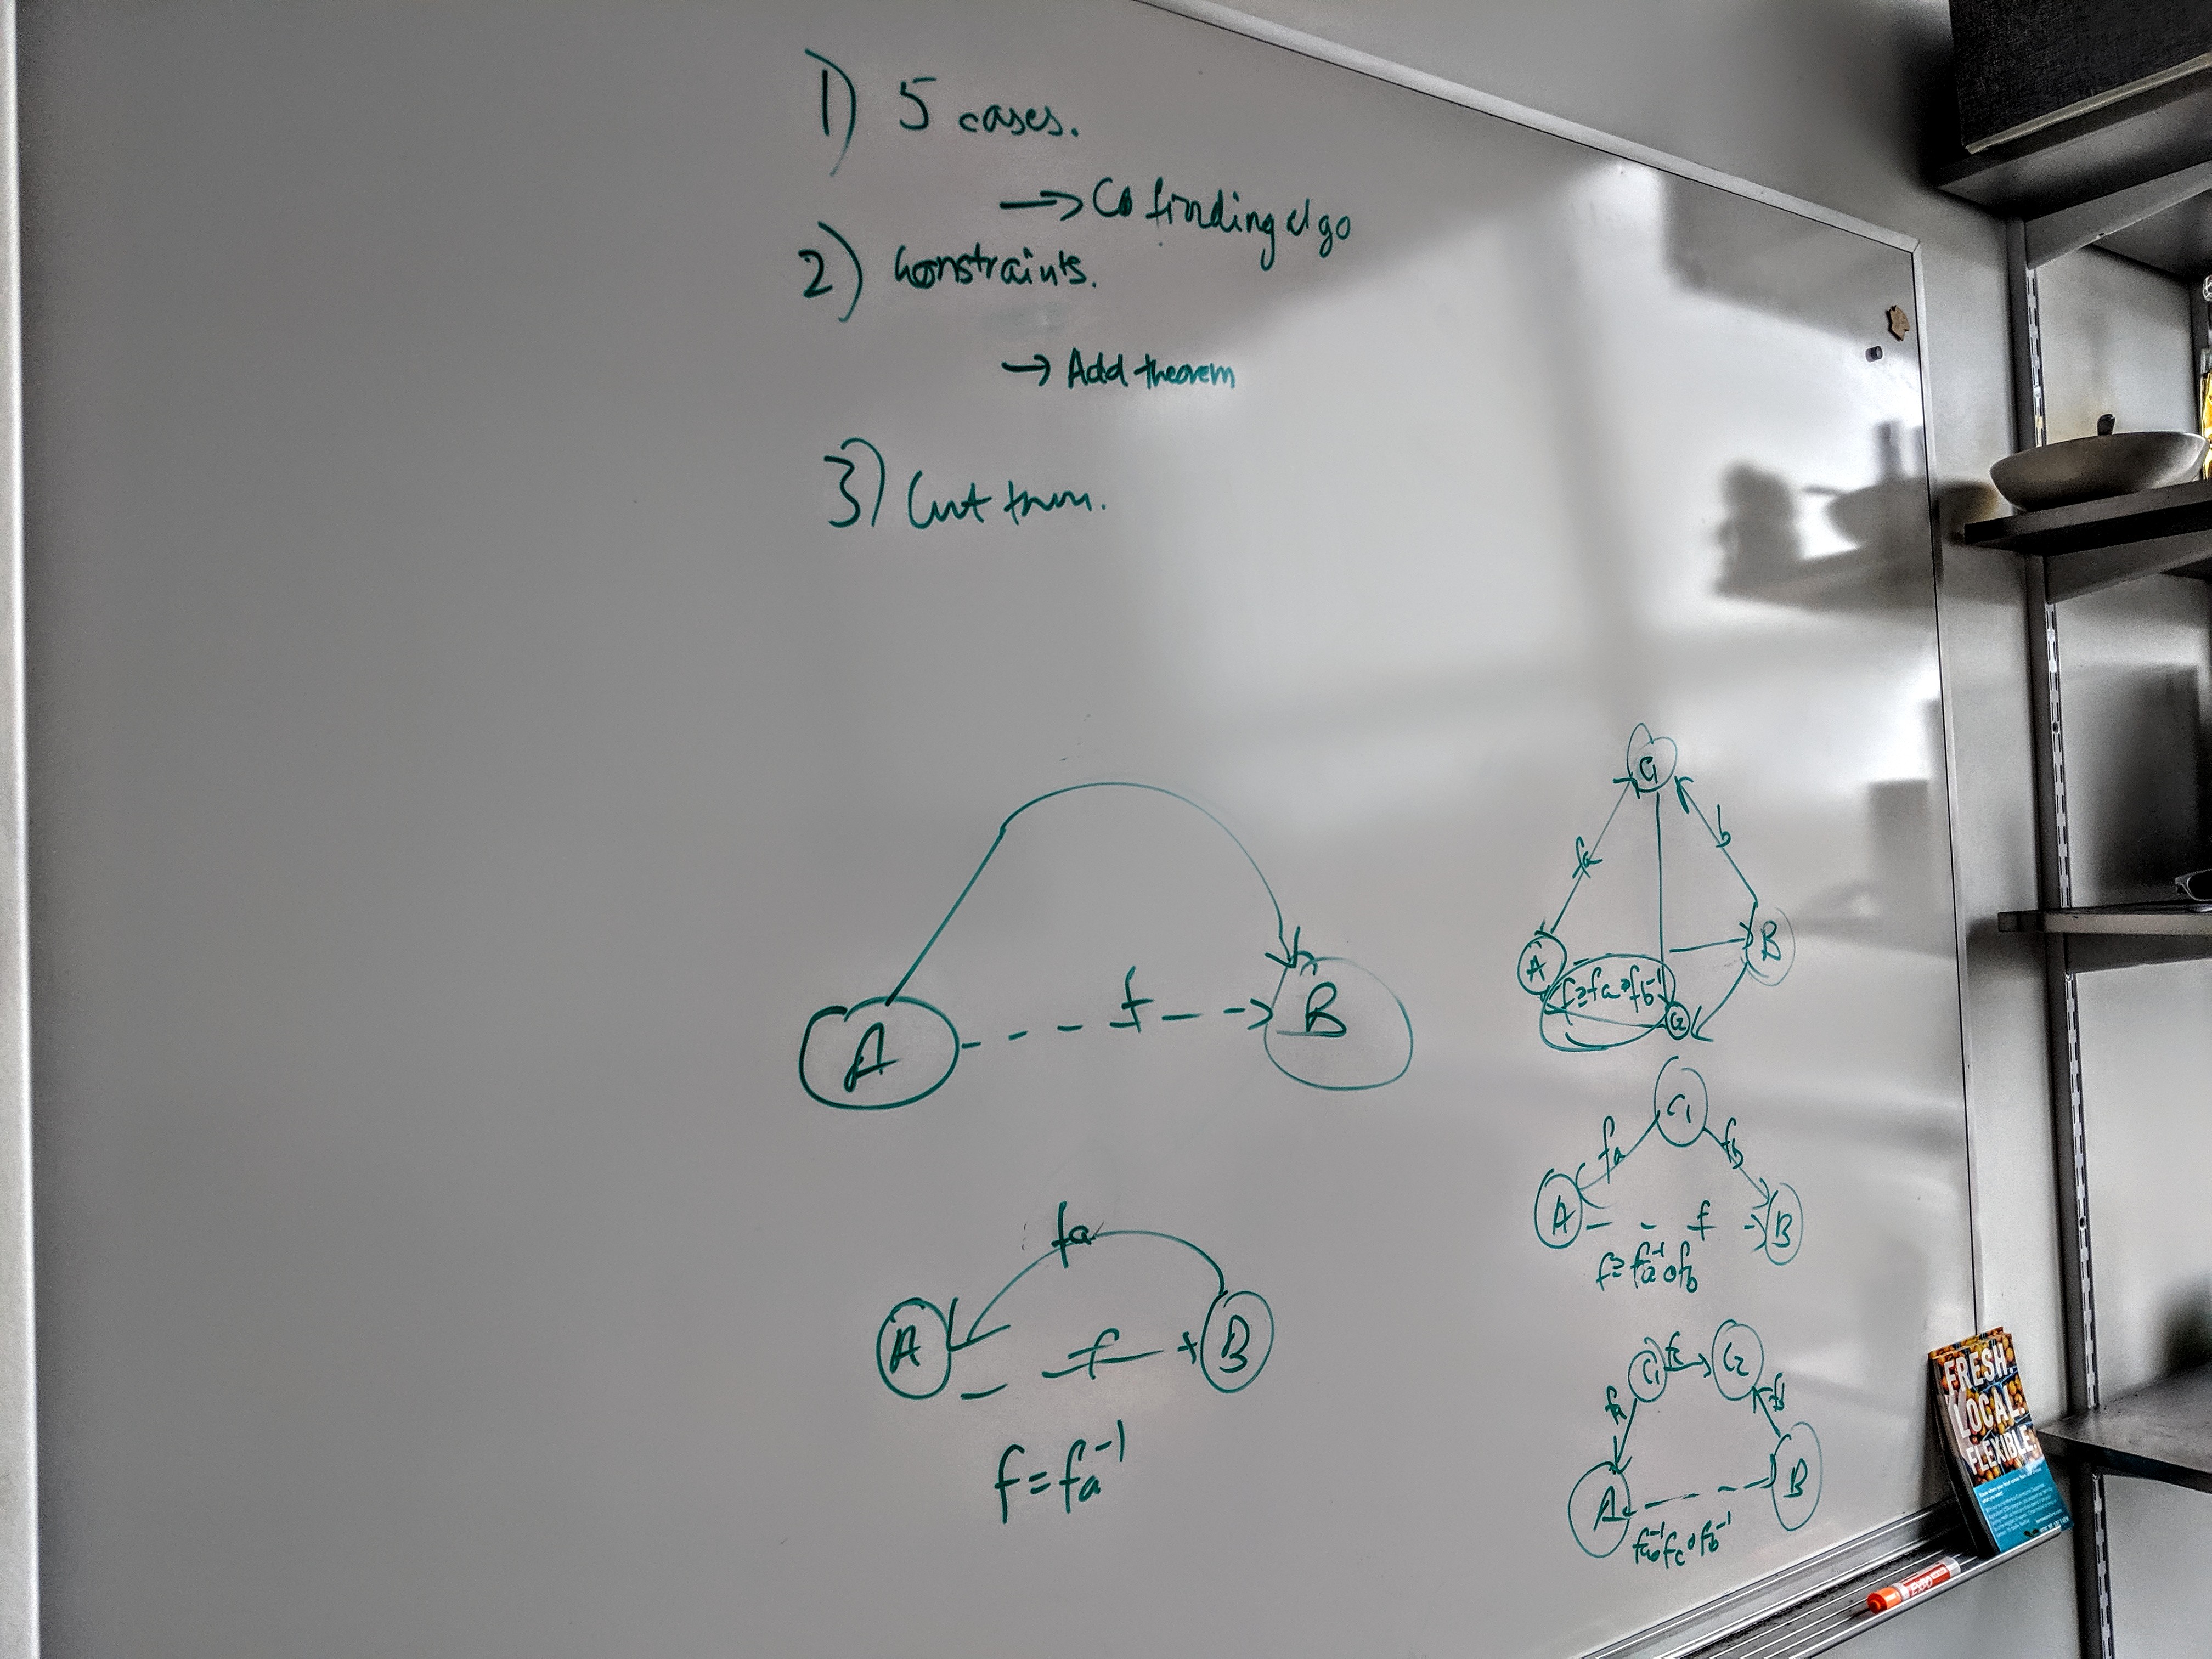 1) 5 cases.
→ Co finding algo
2) Constraints.
→ Add theorem
3) Cut
A
f
B
fa
A
f
B
f = fa⁻¹
C1
fa
b
A
B
f = fa ∘ fb⁻¹
C2
C1
fa
fb
A
f
B
f = fa⁻¹ ∘ fb
C1
fc
C2
fa
fb
A
B
fa⁻¹ ∘ fc ∘ fb⁻¹
FRESH.
LOCAL.
FLEXIBLE.
EXPO